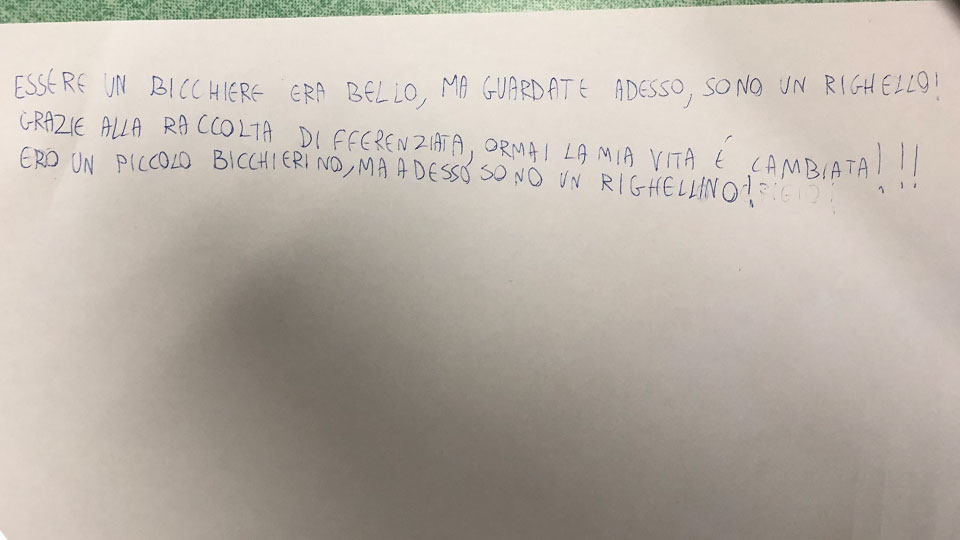 ESSERE UN BICCHIERE ERA BELLO, MA GUARDATE ADESSO, SONO UN RIGHELLO!
GRAZIE ALLA RACCOLTA DIFFERENZIATA, ORMAI LA MIA VITA É CAMBIATA!!!
ERO UN PICCOLO BICCHIERINO, MA ADESSO SONO UN RIGHELLINO!